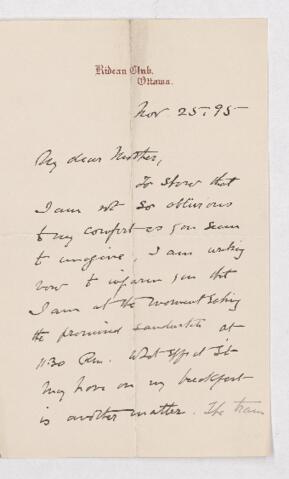 Rideau Club,
Ottawa.
Nov 25, 95
My dear Mother,
To show that
I am not so oblivious
to my comfort as you seem
to imagine, I am writing
now to inform you that
I am at the moment taking
the promised sandwich at
11:30 P.m. What effect it
may have on my breakfast
is another matter. The train